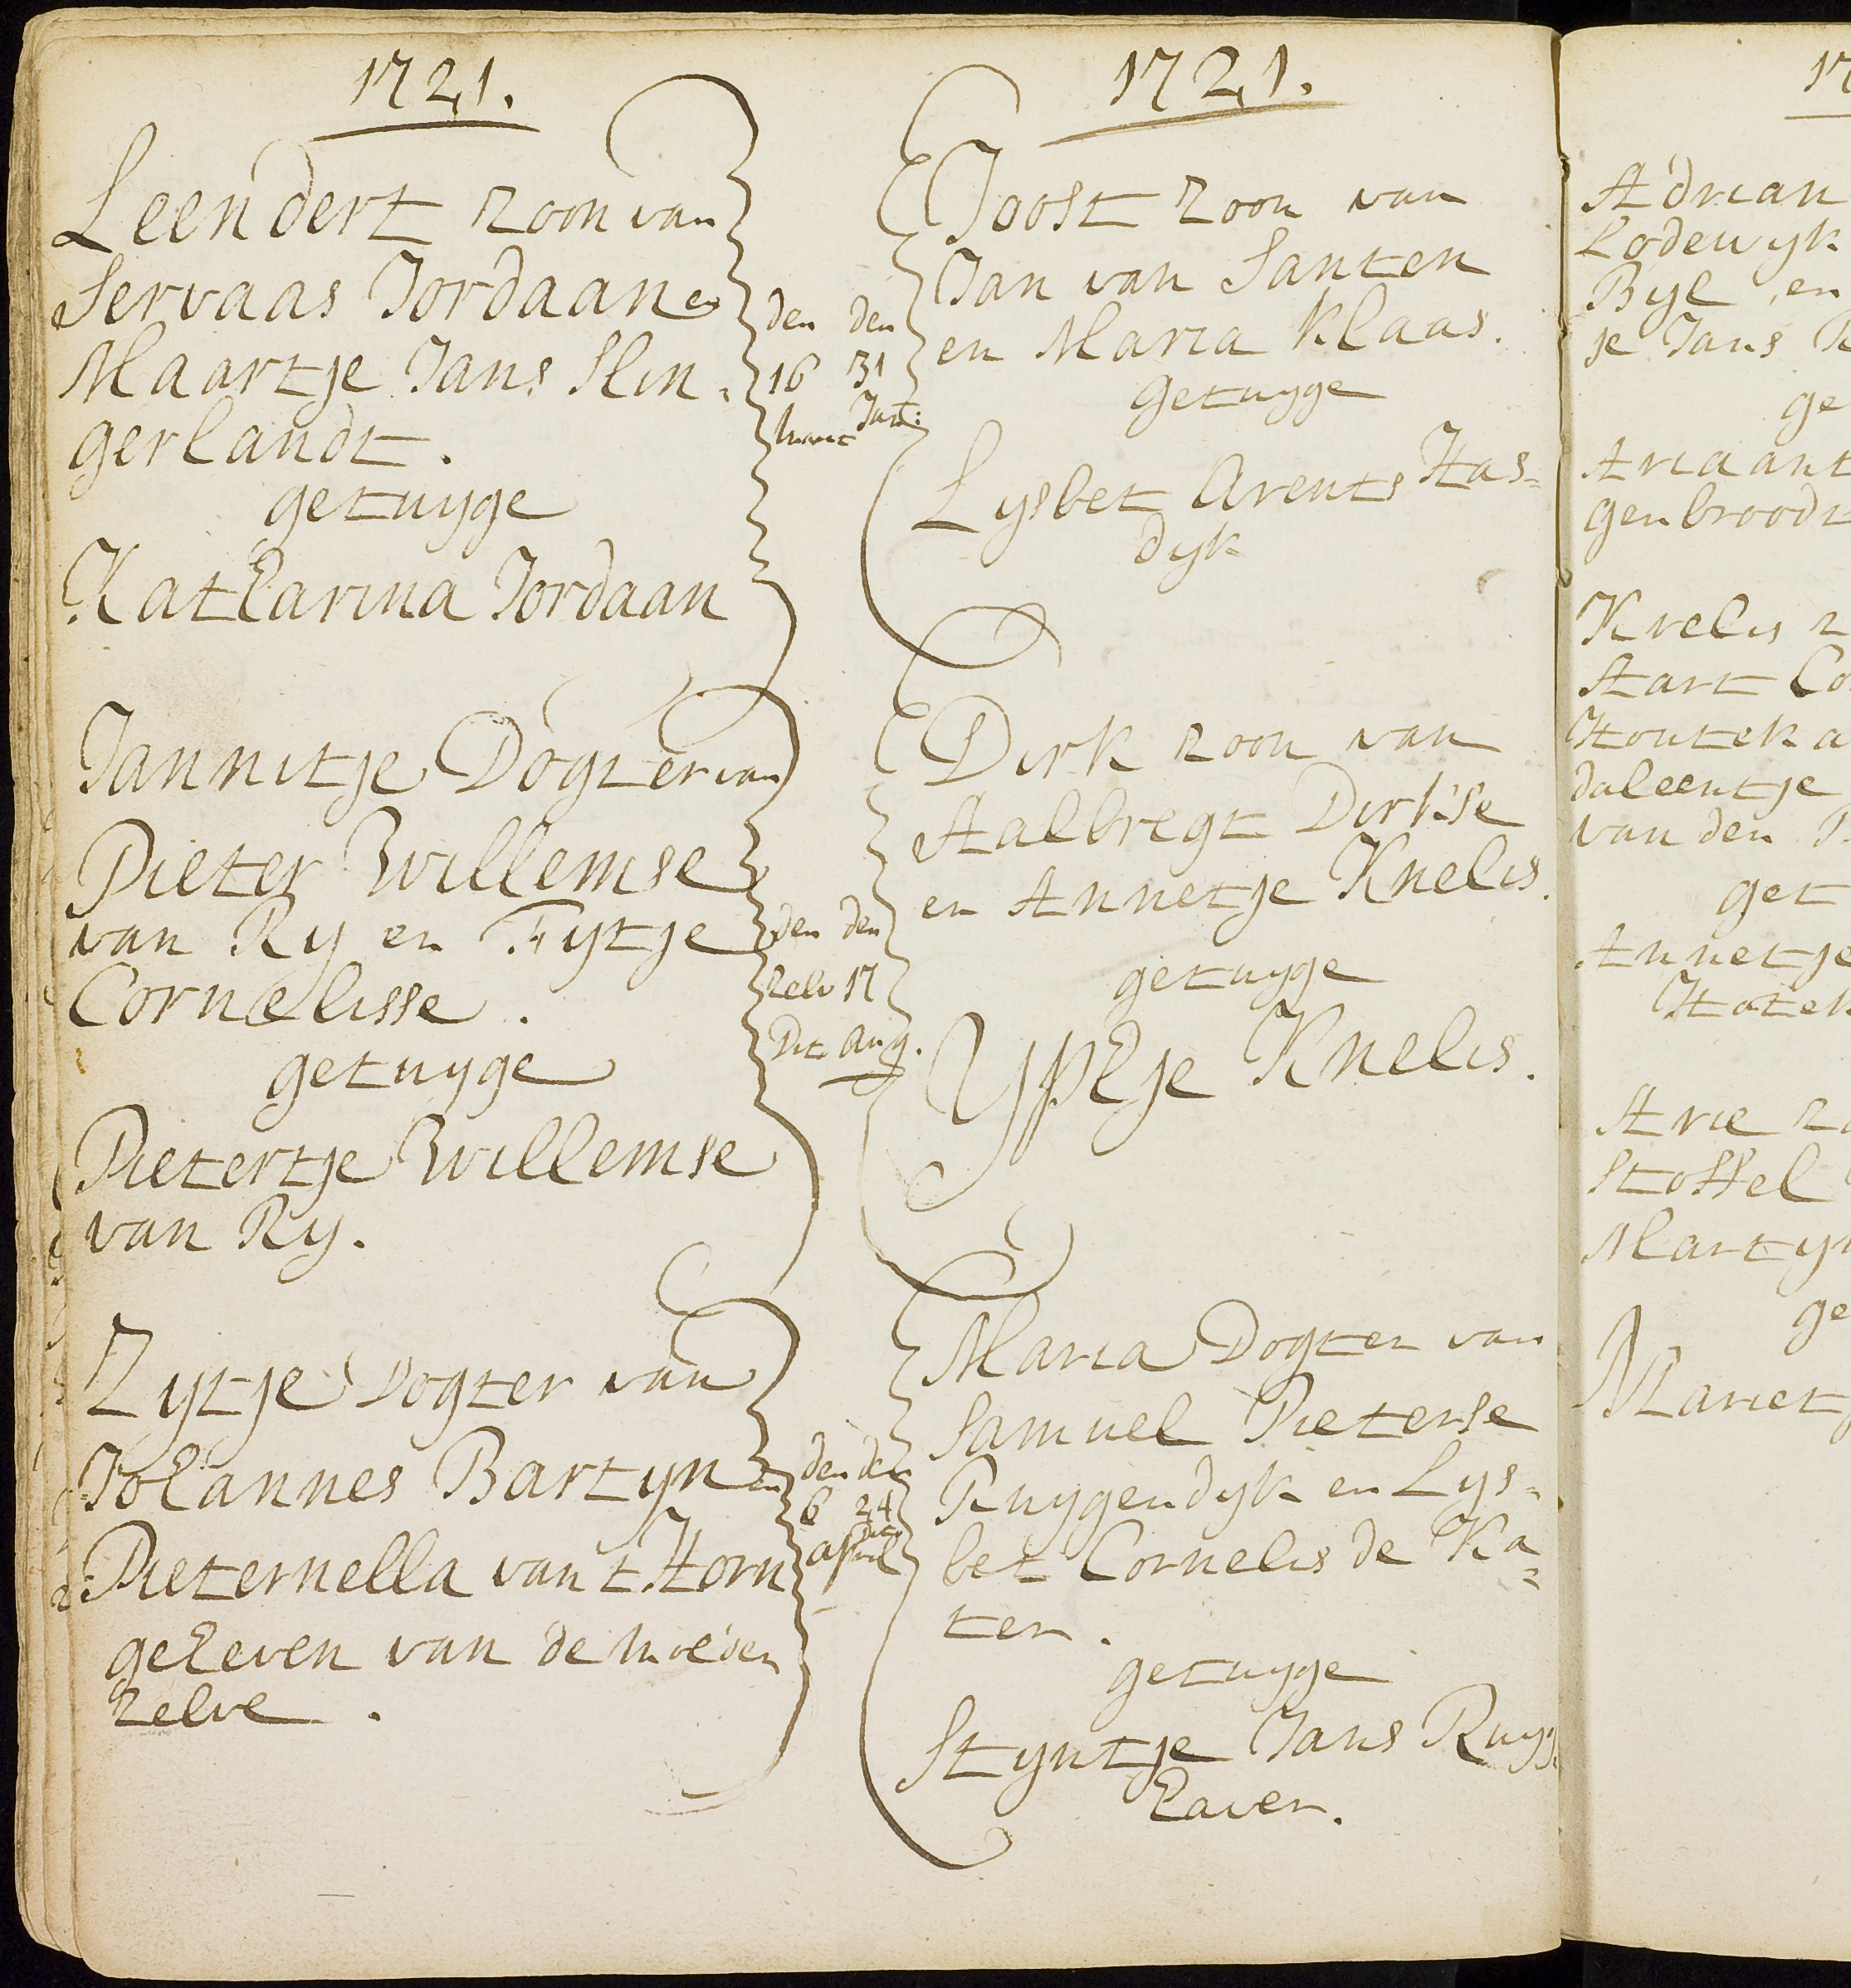 1721.
Leendert zoon van
Servaas Jordaan en
Maartje Jans Slin-
gerlandt.
getuyge
Katharina Jordaan
den
16
Maart
Jannitje Dogter van
Pieter Willemse
van Ry en Fytje
Cornelisse.
getuyge
Pietertje Willemse
van Ry.
den
zelv
Dito
Zytje Dogter van
Johannes Bartyn en
Pieternella van t Horn
geheven van de moeder
zelve.
den
6
april
1721.
den
31
Joost zoon van
Jan van Santen
en Maria Klaas.
getuyge
Lysbet Arents Has=
dyk
den
17
Aug.
Dirk zoon van
Aalbregt Dirkse
en Annetje Knelis.
getuyge
Ypltje Knelis.
den
24
dito
Maria Dogter van
Samuel Pieterse
Ruygendyk en Lys=
bet Cornelis de Ka=
ter.
getuyge
Styntje Jans Ruyg
haver.
17
Adrian
Lodewyk
Byl, en
je Jans
ge
Ariaant
genbroodt
Krelis z
Aart Co
Houtek a
daleentje
van den
get
Annetje
Hotek
Arie zo
Stoffel
Martyn
ge
Marietj